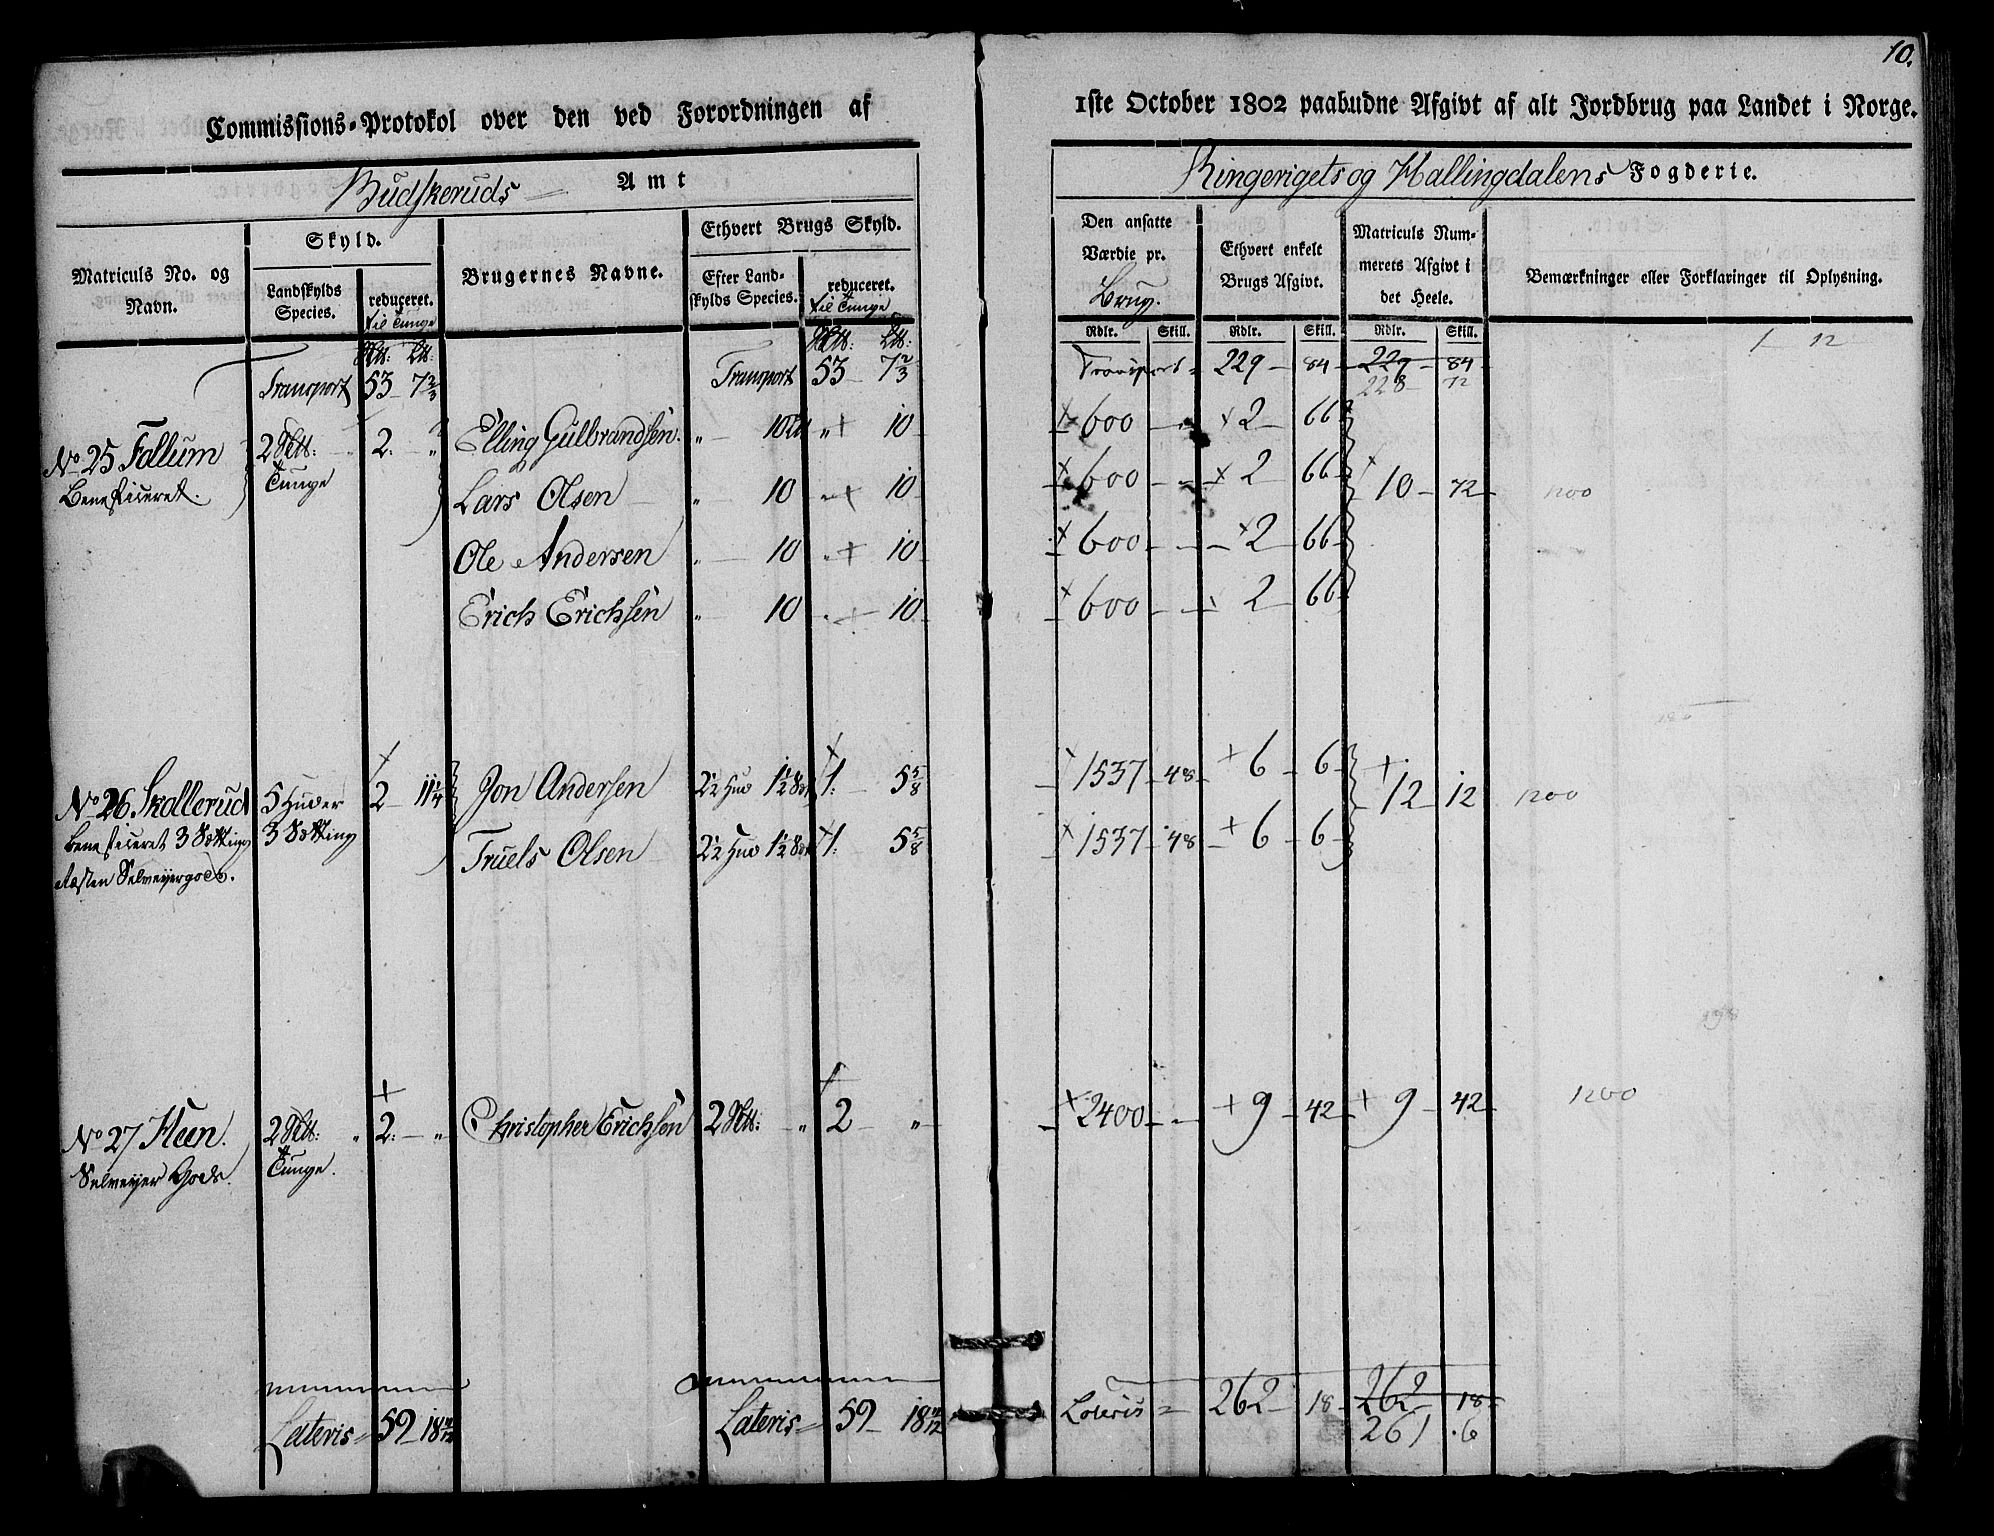 10.
Commissions-Protokol over den ved Forordningen af 1ste October 1802 paabudne Afgivt af alt Jordbrug paa Landet i Norge.
Budskeruds Amt Ringerigets og Hallingdalens Fogderie.
Matriculs No. og Navn.
Skyld.
Landskylds Species.
reduceret. til Tunge
Brugernes Navne.
Ethvert Brugs Skyld.
Efter Landskylds Species.
reduceret. til Tunge
Den ansatte Værdie pr. Brug.
Ethvert enkelt Brugs Afgivt.
Matriculs Nummerets Afgivt i det Heele.
Bemærkninger eller Forklaringer til Oplysning.
Rdlr. Skill. Rdlr. Skill. Rdlr. Skill.
Transport 53 - 7 2/3 Transport 53 - 7 2/3 Transport 229 - 84 - 229 - 84
228 72
No 25 Follum 2 2. - " Elling Gulbrandsen. " 10 " + 10 600 - 2 - 66
Beneficeret. Tunge Lars Olsen " 10 " + 10 600 - 2 66 10 - 72 1200
Ole Andersen " 10 " + 10 600 - 2 66
Erich Erichsen " 10 " + 10 600 - 2 66
No 26. Skollerud 5 Huder 2 - 11 1/4 Jon Andersen 2 1/2 Hud 1 1/2 1. 5 5/8 1537 - 48 + 6 - 6 + 12 12 1200
Beneficeret 3 Setting 3 Setting Truels Olsen 2 1/2 Hud 1 1/2 1. 5 5/8 1537 48 + 6 - 6
Resten Selveyergods.
No 27 Heen. 2 " 2. - " Christopher Erichsen 2 " 2 - " 2400 - + 9 - 42 + 9 - 42 1200
Selveyer Gods. Tunge.
Lateris 59 - 18 11/12 Lateris 59 - 18 11/12 Lateris 262 - 18 - 262 - 18
261 . 6